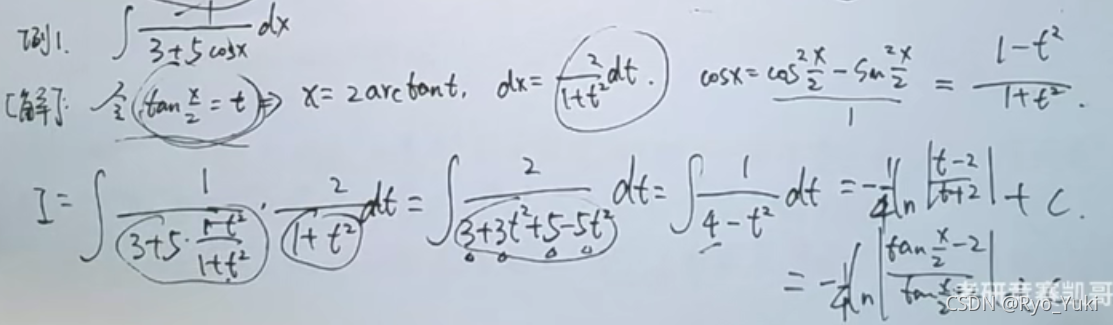 例1. ∫ 1/(3+5cosx) dx
[解]: 令 tan x/2 = t ⇒ x = 2arctant, dx = 2/(1+t²) dt. cosx = (cos² x/2 - sin² x/2)/1 = (1-t²)/(1+t²).
I = ∫ 1/(3+5·(1-t²)/(1+t²)) · 2/(1+t²) dt = ∫ 2/(3+3t²+5-5t²) dt = ∫ 1/(4-t²) dt = -1/4 ln |(t-2)/(t+2)| + C.
= -1/4 ln |(tan x/2 - 2)/(tan x/2
考研竞赛凯哥
CSDN @Ryo_Yuki